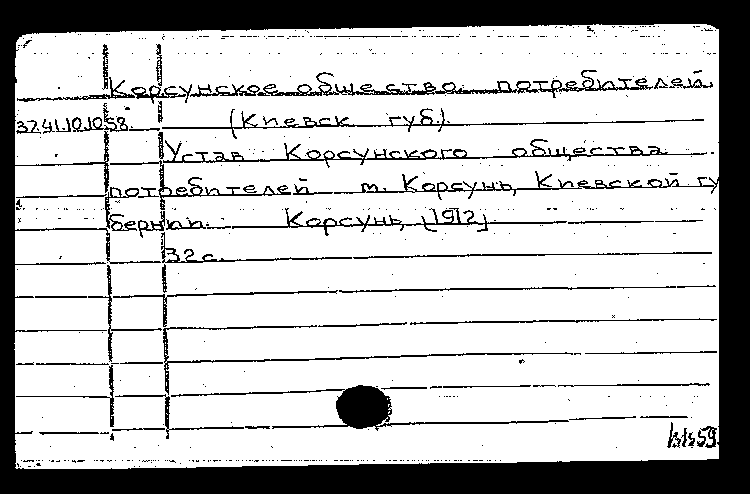 Корсунское общество потребителей
37.41.10.10.58. (Киевск губ.)
Устав Корсунского общества
потребителей м. Корсунь, Киевской гу
бернии. Корсунь, [1912]
32 с.